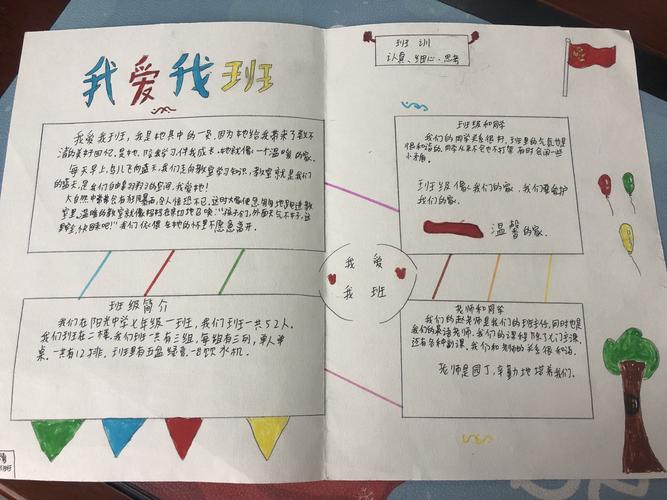 我爱我班
我爱我班，我是她其中的一员，因为她给我带来了数不
清的美好回忆。是她，陪我学习，伴我成长。她就像一个温暖的家。
每天早上，鸟儿飞向蓝天，我们走向教室学习知识，教室就是我们
的蓝天，是我们自由翱翔的空间，我爱她！
大自然中常常会有狂风暴雨，令人惶恐不已，这时大家便急匆匆地跑进教
室里，温暖的教室就像妈妈亲切地召唤：“孩子们，外面天气不好，这
里安全，快回来吧！”我们依偎在她的怀里不愿意离开。
班级简介
我们在阳光中学七年级一班，我们班一共52人。
我们班在二楼，我们班一共有三组，每组有三列，单人单
桌。一共有12排，班里有五盆绿音，一台饮水机。
班训
认真、细心、思考
班级和同学
我们的同学关系很好，班里的气氛也是
很和谐的，同学从来不会吵打架，有时会闹一些
小矛盾。
班级就像我们的家，我们要爱护
我们的家。
温馨的家。
我爱
我班
老师和同学
我们的赵老师是我们的班主任，同时也是
我们的英语老师。我们的课程除了七门主课，
还有各种副课。我们和老师的关系很和谐。
老师是园丁，辛勤地培养我们。